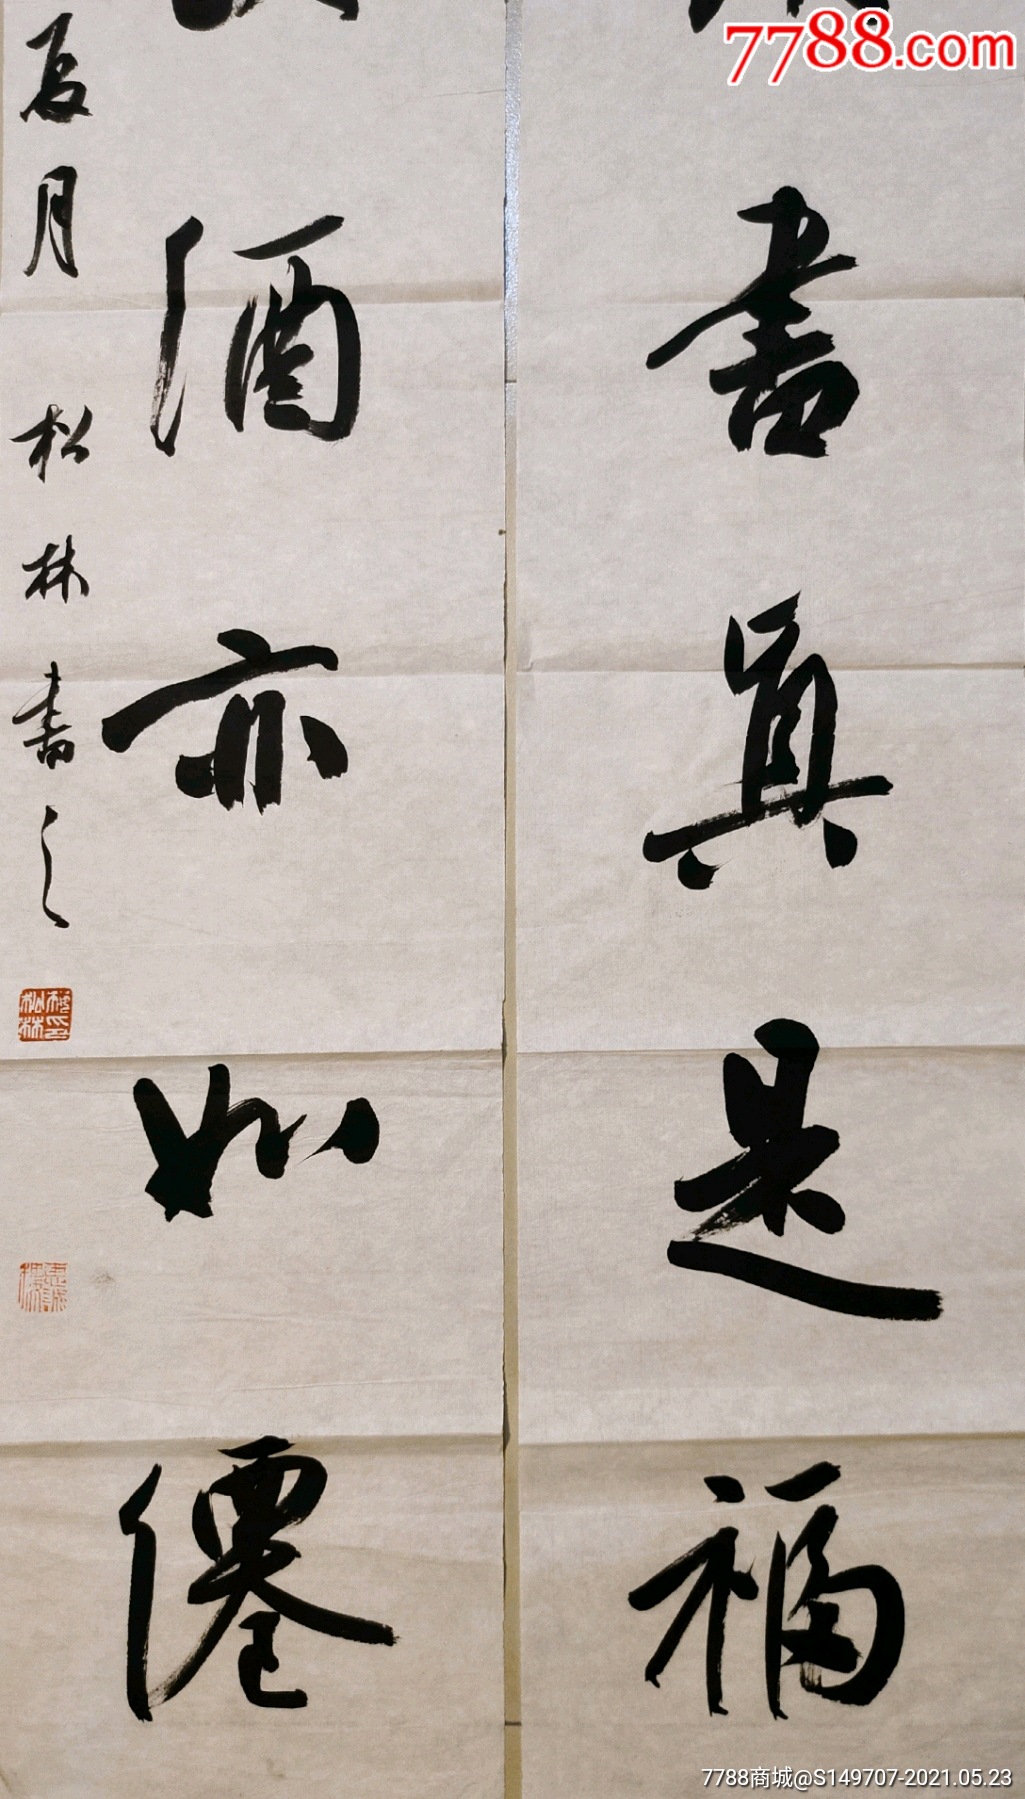 7788.com
書真是福
酒亦如僊
夏月松林書之
7788商城@S149707-2021.05.23